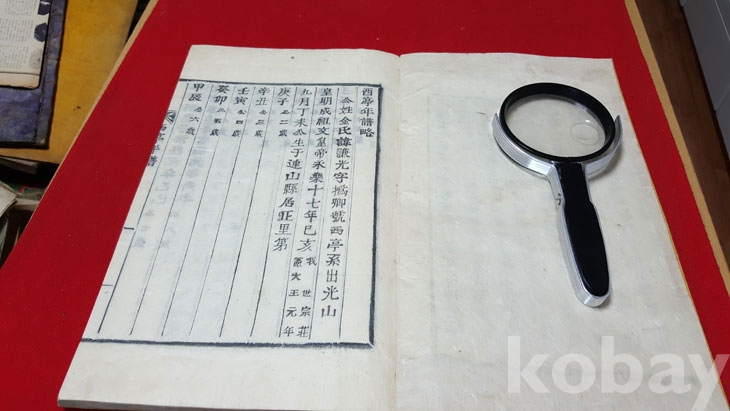 西亭年譜略
公姓金氏諱謙光字撝卿號西亭系出光山
皇明成祖文皇帝永樂十七年己亥我世宗莊憲大王元年
九月丁未公生于連山縣居正里第
庚子公二歲
辛丑公三歲
壬寅公四歲
癸卯公五歲
甲辰公六歲
西亭年譜
kobay